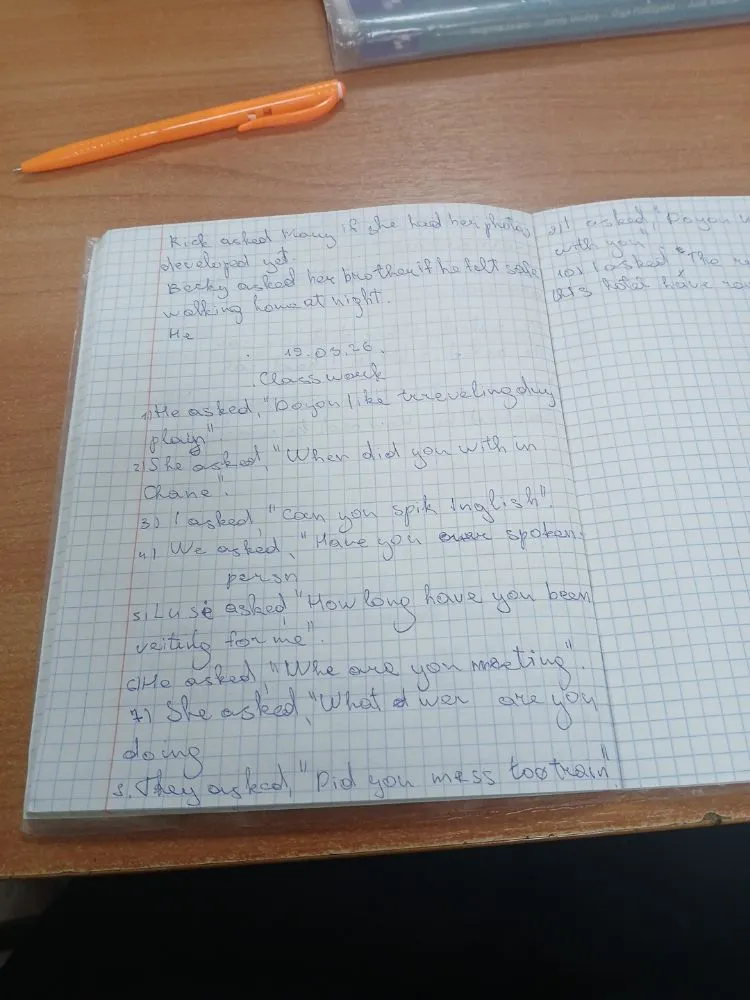 Rick asked Mary if she had her photos
developed yet.
Becky asked her brother if he felt safe
walking home at night.
He
19.03.26.
Classwork
1) He asked, "Do you like traveling duy
playn".
2) She asked, "When did you with in
Chane".
3) I asked, "Can you spik Inglish".
4.) We asked, "Have you ever spoken
persn
5. Luse asked "How long have you been
veiting for me".
6) He asked, "Whe are you meeting".
7) She asked, "What d wer are you
doing
8. They asked, "Did you mess too train".
9) I asked, "Do you
with you
10) I asked "The
have